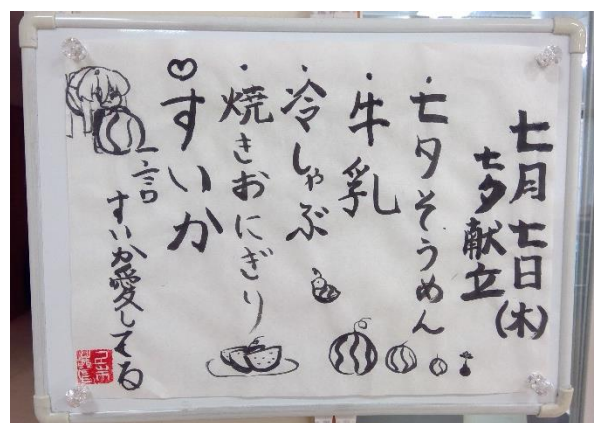 七月七日(木)
七夕献立
・七夕そうめん
・牛乳
・冷しゃぶ
・焼きおにぎり
♡すいか
一言
すいか愛してる